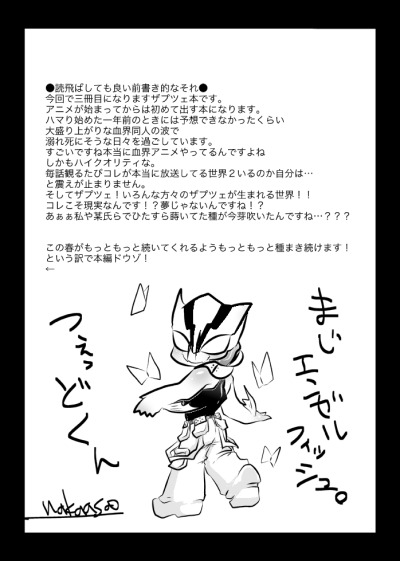 ●読飛ばしても良い前書き的なそれ●
今回で三冊目になりますザプツェ本です。
アニメが始まってからは初めて出す本になります。
ハマり始めた一年前のときには予想できなかったくらい
大盛り上がりな血界同人の波で
溺れ死にそうな日々を過ごしています。
すごいですね本当に血界アニメやってるんですよね
しかもハイクオリティな。
毎話観るたびコレが本当に放送してる世界２いるのか自分は…
と震えが止まりません。
そしてザプツェ！いろんな方々のザプツェが生まれる世界！！
コレこそ現実なんです！？夢じゃないんですね！？
あぁぁ私や某氏らでひたすら蒔いてた種が今芽吹いたんですね…？？？
この春がもっともっと続いてくれるようもっともっと種まき続けます！
という訳で本編ドウゾ！
←
まじ
エンゼル
フィッシュ。
つぇっ
どくん